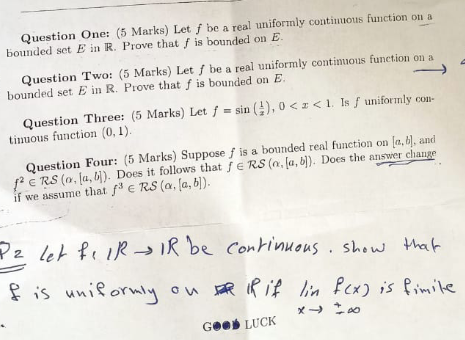 Question One: (5 Marks) Let f be a real uniformly continuous function on a
bounded set E in ℝ. Prove that f is bounded on E.
Question Two: (5 Marks) Let f be a real uniformly continuous function on a
bounded set E in ℝ. Prove that f is bounded on E.
Question Three: (5 Marks) Let f = sin (1/x), 0 < x < 1. Is f uniformly con-
tinuous function (0, 1).
Question Four: (5 Marks) Suppose f is a bounded real function on [a, b], and
f² ∈ RS (α, [a, b]). Does it follows that f ∈ RS (α, [a, b]). Does the answer change
if we assume that f³ ∈ RS (α, [a, b]).
P2 let f: ℝ → ℝ be continuous. show that
f is uniformly on ℝ if lim f(x) is finite
x → ±∞
GOOD LUCK